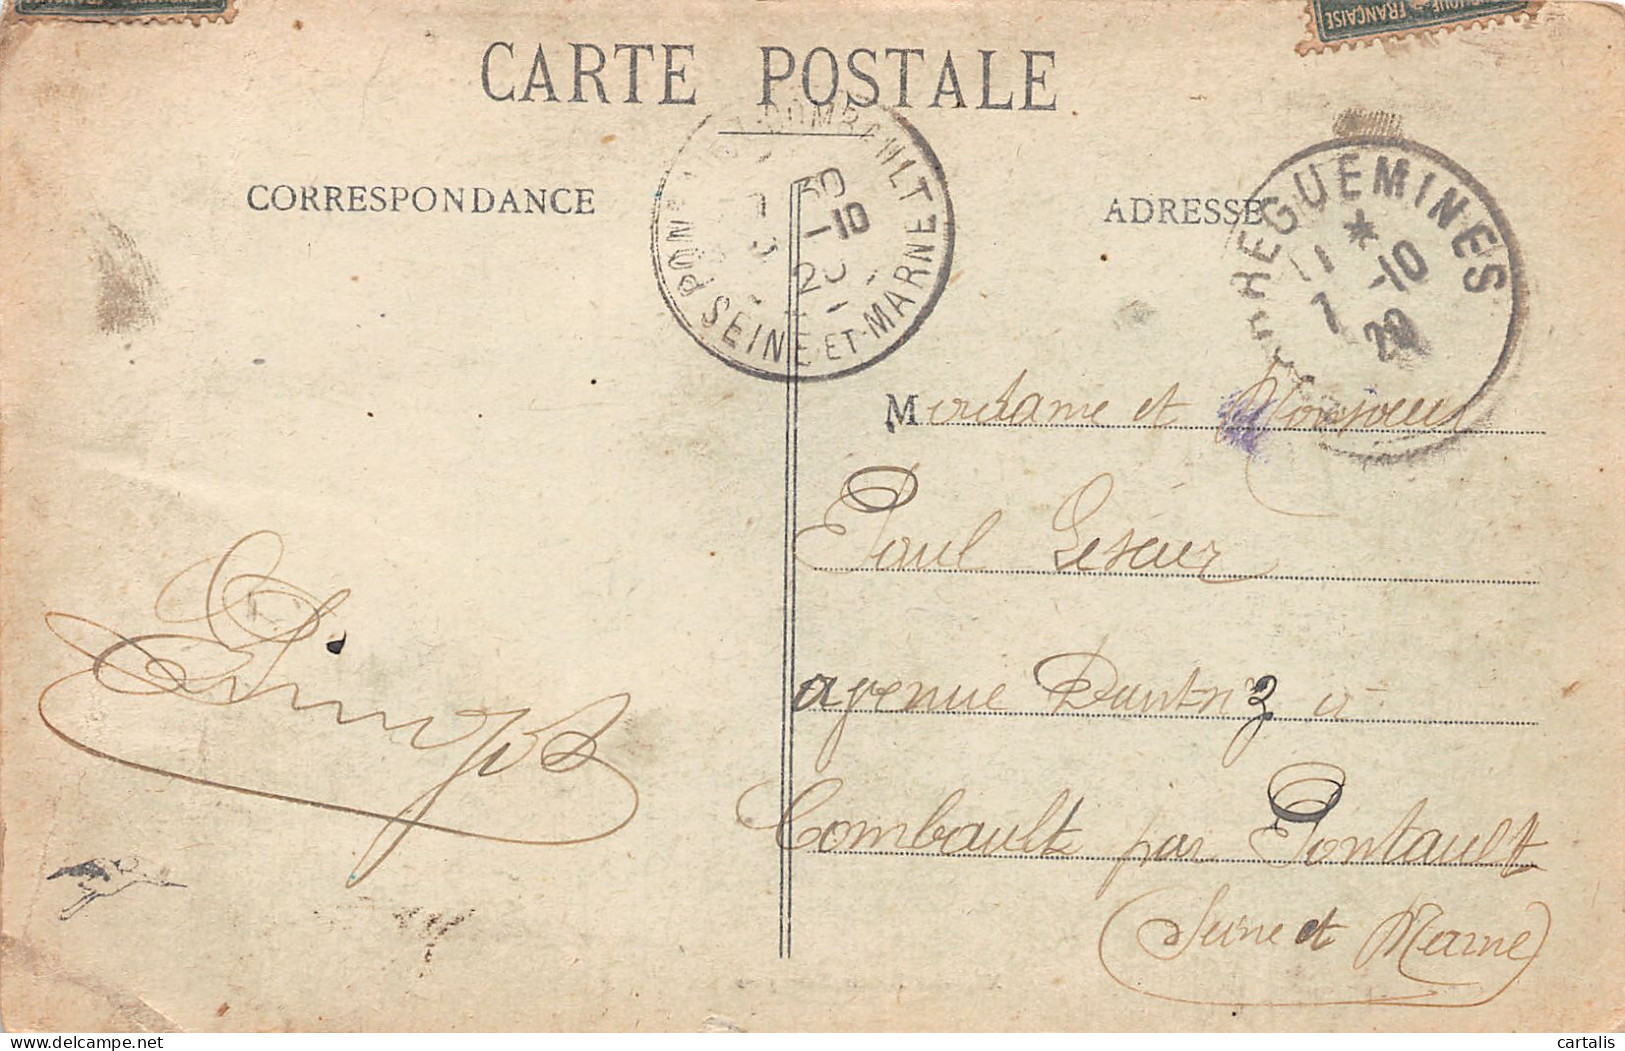 FRANÇAISE
CARTE POSTALE
CORRESPONDANCE
ADRESSE
COMBAULT
SEINE-ET-MARNE
30
-10
20
REGUEMINES
11 *
7 -10
20
Madame et Monsieur
Paul Leseur
à
Combault par Pontault
(Seine et Marne)
cartalis